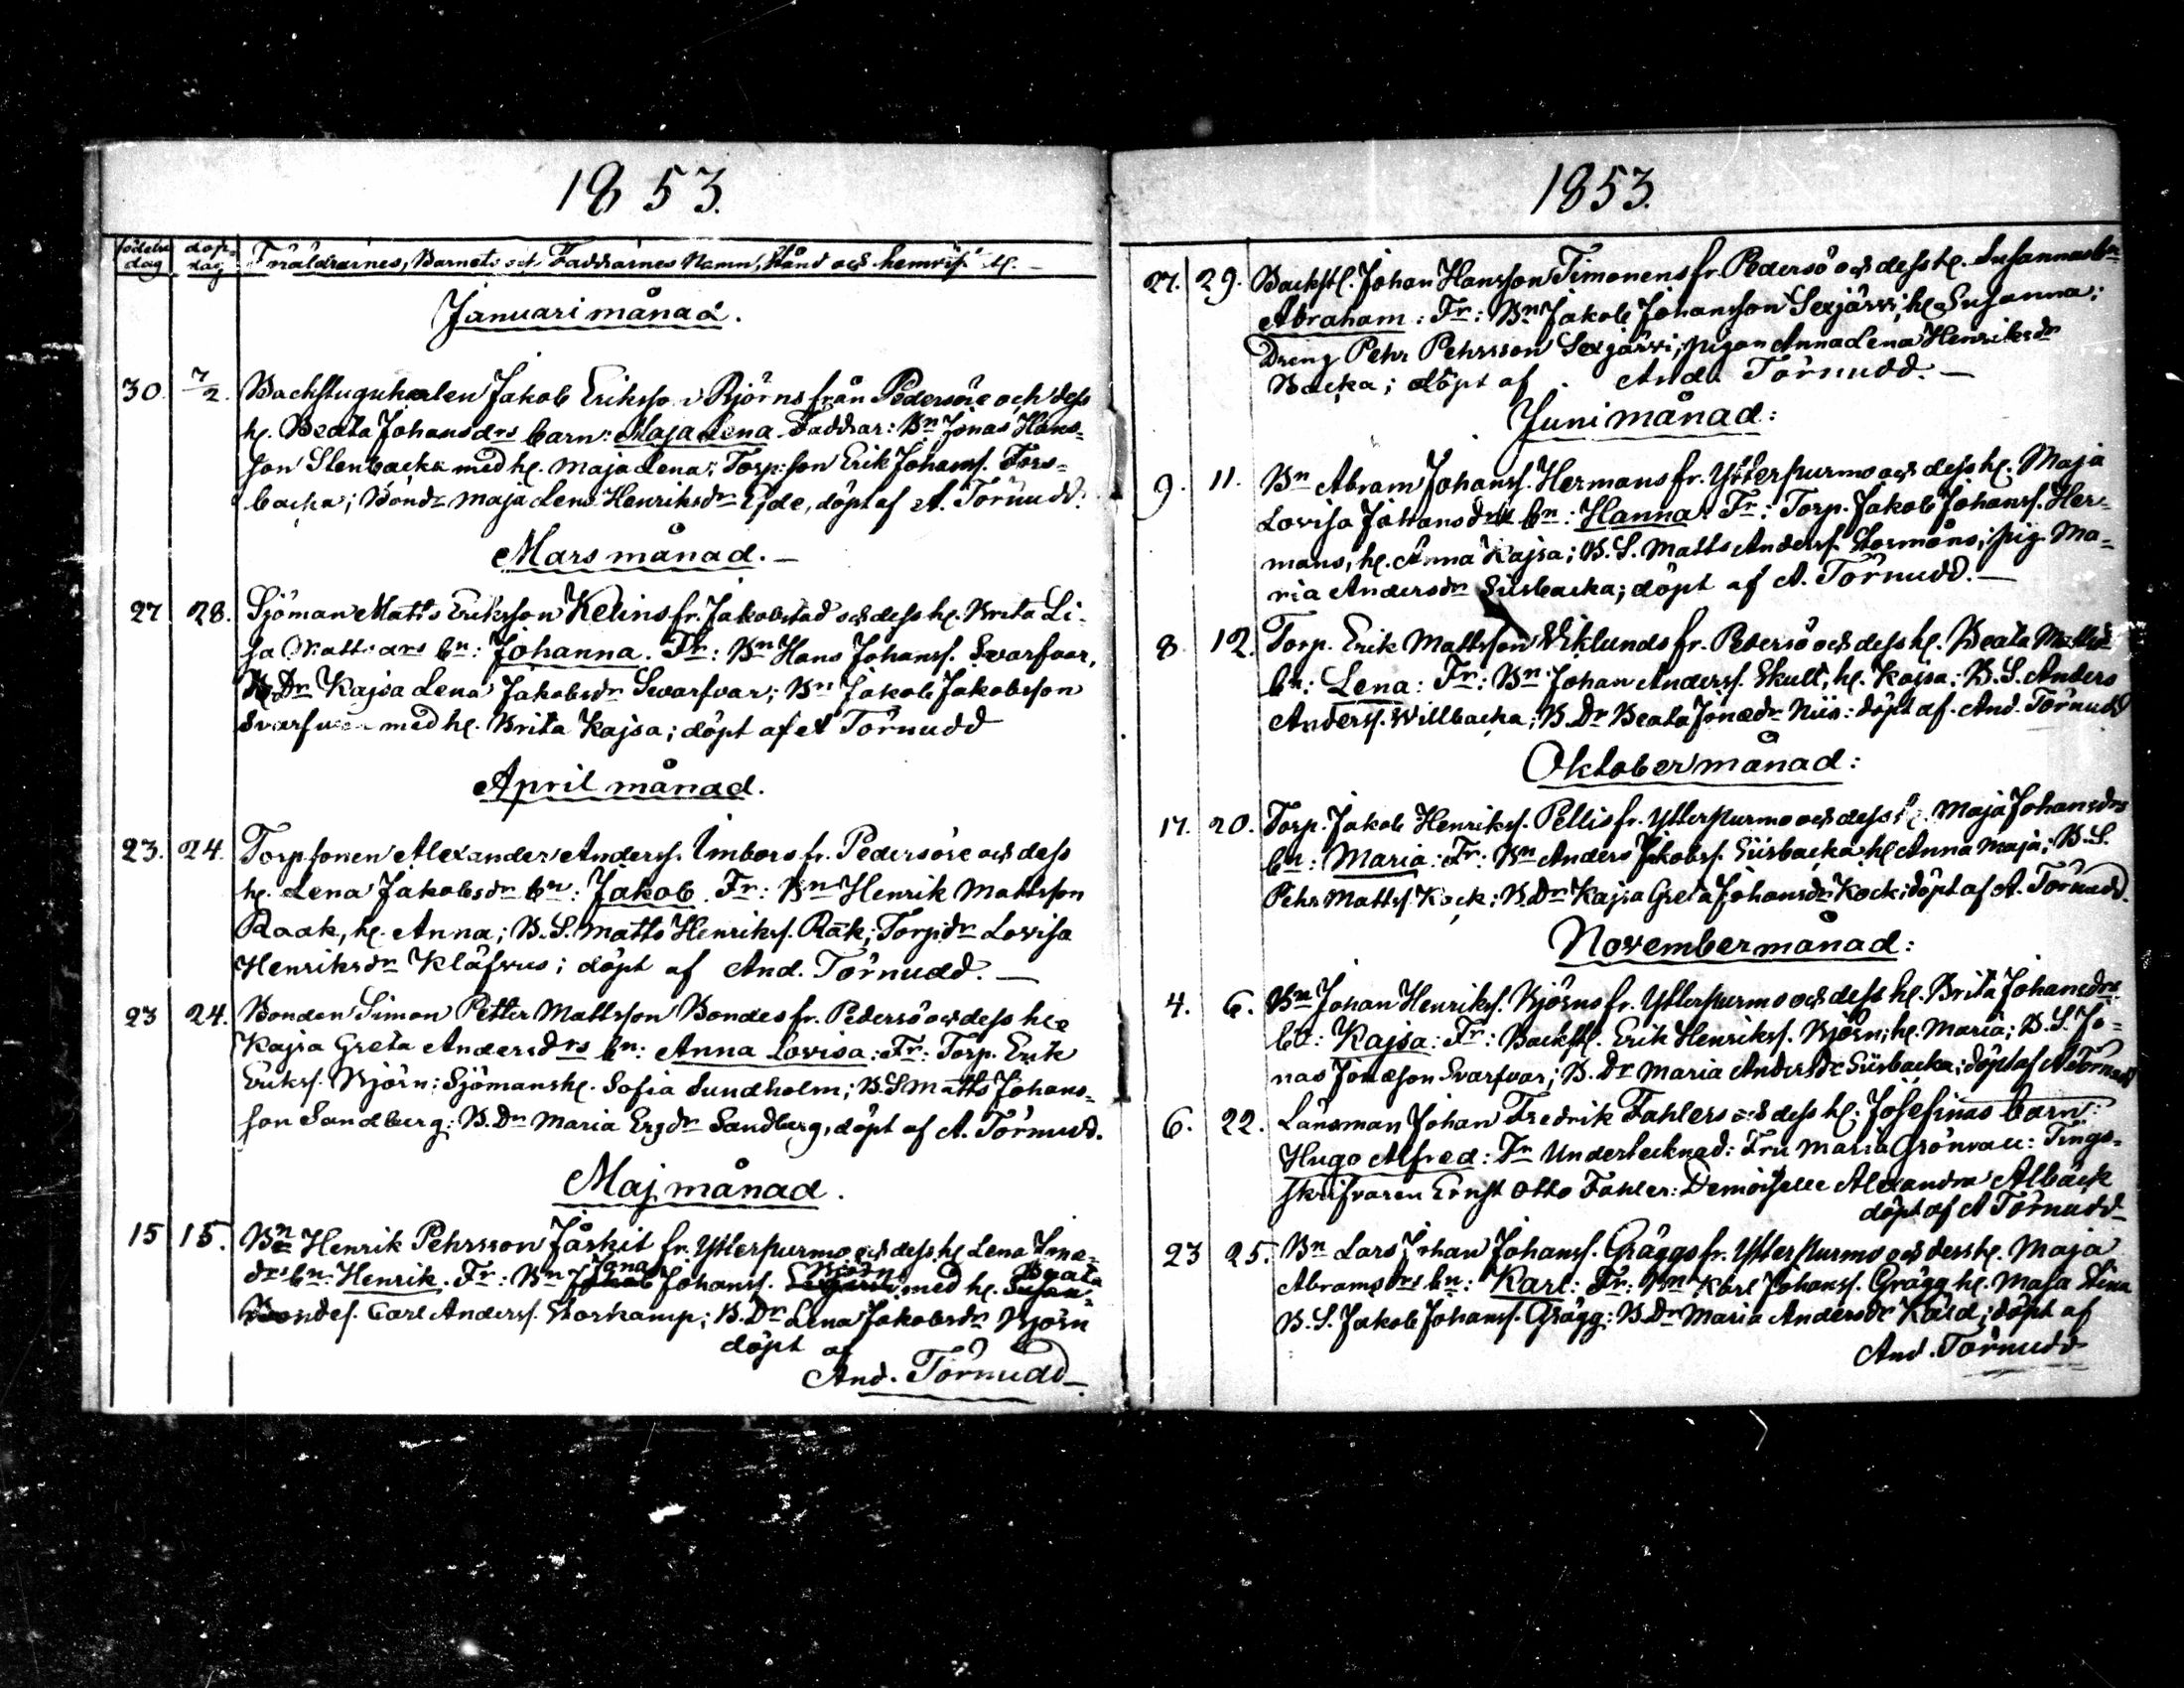 1853.
födelse dag
dop- dag
Föräldrarnes, Barnets och Faddrarnes Namn, Stånd och hemvist
Januari månad.
30 7/2. Backstuguhalen Jakob Eriksso Björns från Pedersöre och dess
h. Beata Johansdrs barn: Maja Lena. Faddrar: Bn Jonas Hans-
son Stenbacka med h. Maja Lena; Torp: son Erik Johanss. Fors-
backa; Bondr Maja Lena Henriksdr Ejde, döpt af A. Törnudd.
Mars månad. -
27 28. Sjöman Matts Eriksson Kelins fr. Jakobstad och dess h. Brita Li-
sa bn: Johanna. Fr: Bn Hans Johanss. Svarfvar,
Dr Kajsa Lena Jakobsdr Svarfvar; Bn Jakob Jakobsson
med h. Brita Kajsa; döpt af A Törnudd
April månad.
23. 24. Torpsonen Alexander Anderss. Imbors fr. Pedersöre och dess
h. Lena Jakobsdr bn: Jakob. Fr: Bn Henrik Mattsson
Raak, h. Anna; B. S. Matts Henrikss. Råk; Torp: dr Lovisa
Henriksdr Kläfvus; döpt af And. Törnudd. -
23 24. Bonden Simon Petter Mattsson Bondes fr. Pedersö och dess
Kajsa Greta Andersdrs bn: Anna Lovisa: Fr: Torp. Erik
Erikss. Björn: Sjömansh. Sofia Sundholm; B. S Matts Johans-
son Sandberg: B. Dr Maria Ersdr Sandberg, döpt af A. Törnudd.
Maj månad.
15 15. Bn Henrik Pehrsson Jåskit fr. Ytterpurmo och dess h. Lena
bn Henrik. Fr: Bn Jona Johanss. Björn med h. Beata
Carl Anderss. Storkamp; B. Dr Lena Jakobsdr Björn
döpt af
And. Törnudd -
1853.
27. 29. Backst. Johan Hansson Timonens fr. Pedersö och dess h. Susannas bn
Abraham: Fr: Bn Jakob Johansson Sexjärvi; h. Susanna;
Dreng Pehr Pehrsson Sexjärvi; pigan Anna Lena Henriksdr
Backa; döpt af. And. Törnudd. -
Juni månad:
9. 11. Bn Abram Johanss. Hermans fr. Ytterpurmo och dess h. Maja
Lovisa Johansdrs bn: Hanna: Fr: Torp. Jakob Johanss. Her-
mans, h. Anna Kajsa; B. S. Matts Anderss. Stormåns; pig. Ma-
ria Andersdr Siisbacka; döpt af A. Törnudd. -
8 12. Torp. Erik Mattsson Viklunds fr. Pedersö och dess h. Beata
bn: Lena: Fr: Bn Johan Anderss. Skult, h. Kajsa: B. S. Anders
Anderss. Willbacka; B. Dr Beata Jonædr Niis: döpt af. And. Törnudd
Oktober månad:
17. 20. Torp. Jakob Henrikss. Pellis fr. Ytterpurmo och dess h. Maja Johansdrs
bn: Maria: Fr: Bn Anders Jakobss. Siisbacka h Anna Maja; B. S.
Pehr Mattss. Kock; B. Dr Kajsa Greta Johansdr Kock; döpt af A. Törnudd.
November månad:
4. 6. Bn Johan Henrikss. Björns fr. Ytterpurmo och dess h. Brita Johansdrs
bn: Kajsa: Fr: Backst. Erik Henrikss. Björn; h. Maria; B. S. Jo-
nas Jonæson Svarfvar; B. Dr Maria Andersdr Siisbacka; döpt af A Törnudd
6. 22. Länsman Johan Fredrik Fahlers och dess h. Josefinas barn:
Hugo Alfred: Fr Undertecknad: Fru Maria Grönvall: Tings-
skrifvaren Ernst Otto Fahler: Demoiselle Alexandra Albäck
döpt af A Törnudd -
23 25. Bn Lars Johan Johanss. Gräggs fr. Ytterpurmo och dess h. Maja
Abramsdrs bn: Karl: Fr: Bn Karl Johanss. Grägg h. Maja Lina
B. S. Jakob Johanss. Grägg: B. Dr Maria Andersdr Kåld; döpt af
And. Törnudd